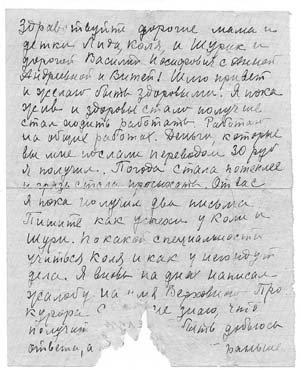 Здравствуйте дорогие мама и
детки Лида, Коля, и Шурик и
дорогой Василий Иосифович с Финой
Андреевной и Витей! Шлю привет
и желаю быть здоровыми. Я пока
жив и здоровье стало получше
стал ходить работать. Работаю
на общих работах. Деньги, которые
вы мне послали переводом 30 руб
я получил. Погода стала потеплее
и грязь стала просыхать. От вас
я пока получил два письма
Пишите как успехи у Коли и
Шуры. По какой специальности
учиться Коля и как у него идут
дела. Я вновь на днях написал
жалобу на имя Верховного Про
курора С не знаю, что
получит быть добьюсь
ответа, а раньше